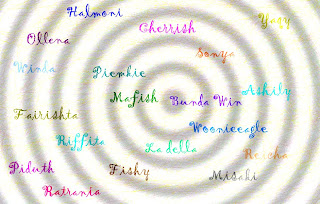 Halmoni
Yasy
Cherrish
Ollena
Sonya
Winda
Piemkie
Ashily
Mafish
Bunda Win
Fairishta
Woonieeagle
Riffita
La della
Reicha
Piduth
Fishy
Misaki
Ratrania